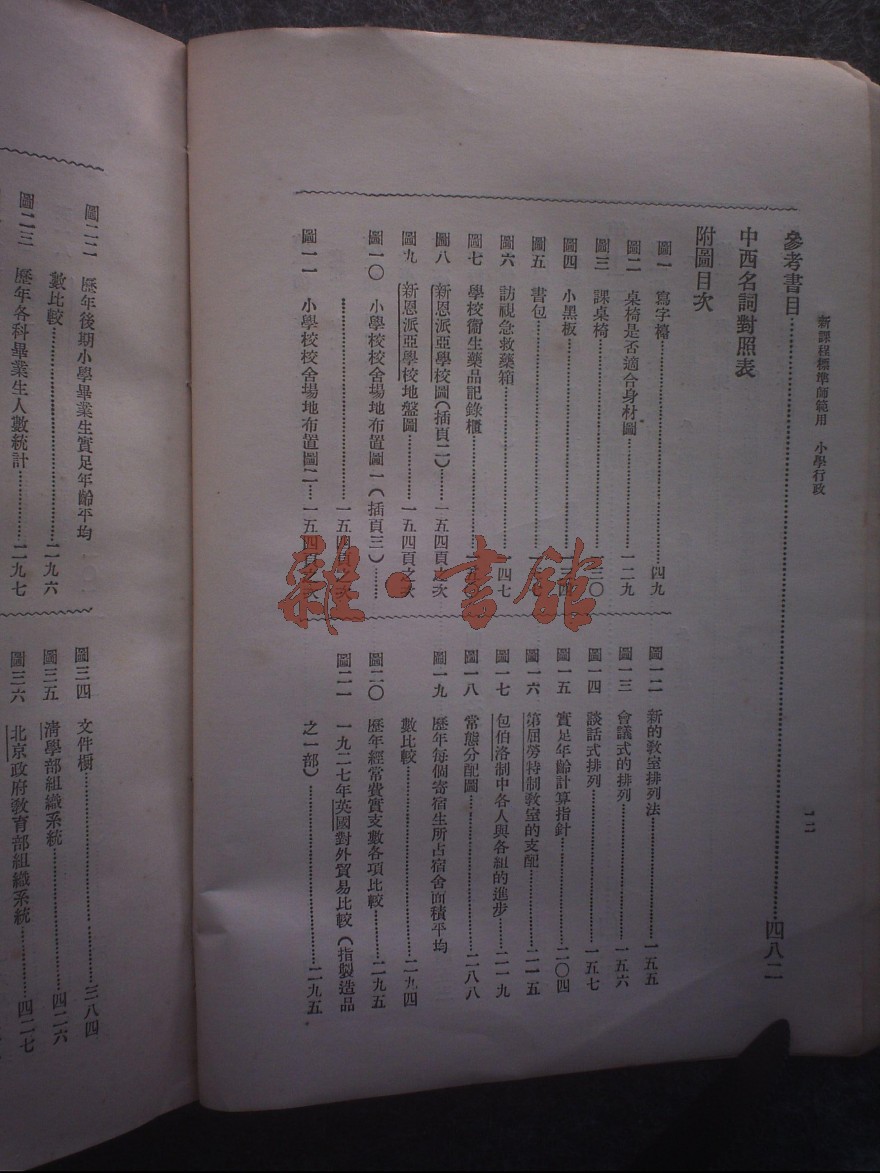 新課程標準師範用　小學行政
一二
參考書目…………四八二
中西名詞對照表
附圖目次
圖一　寫字檯…………四九
圖二　桌椅是否適合身材圖…………一二九
圖三　課桌椅…………一三〇
圖四　小黑板…………一三四
圖五　書包…………
圖六　訪視急救藥箱…………一四七
圖七　學校衞生藥品記錄櫃…………
圖八　新恩派亞學校圖（插頁二）……一五四頁之次
圖九　新恩派亞學校地盤圖…………一五四頁之次
圖一〇　小學校校舍場地布置圖一（插頁三）……
…………一五四頁之次
圖一一　小學校校舍場地布置圖二…一五四頁之次
圖一二　新的教室排列法…………一五五
圖一三　會議式的排列…………一五六
圖一四　談話式排列…………一五七
圖一五　實足年齡計算指針…………二〇四
圖一六　第屈勞特制教室的支配…………二一五
圖一七　包伯洛制中各人與各組的進步……二一九
圖一八　常態分配圖…………二八八
圖一九　歷年每個寄宿生所占宿舍面積平均
數比較…………二九四
圖二〇　歷年經常費實支數各項比較……二九五
圖二一　一九二七年英國對外貿易比較（指製造品
之一部）…………二九五
圖二二　歷年後期小學畢業生實足年齡平均
數比較…………二九六
圖二三　歷年各科畢業生人數統計…………二九七
圖三四　文件櫥…………三八四
圖三五　清學部組織系統…………四二六
圖三六　北京政府教育部組織系統…………四二七
雜·書館